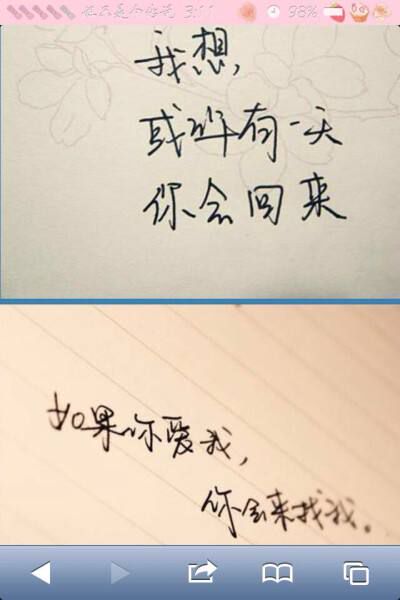 3:11 98%
我想,
或许有一天
你会回来
如果你爱我,
你会来找我。